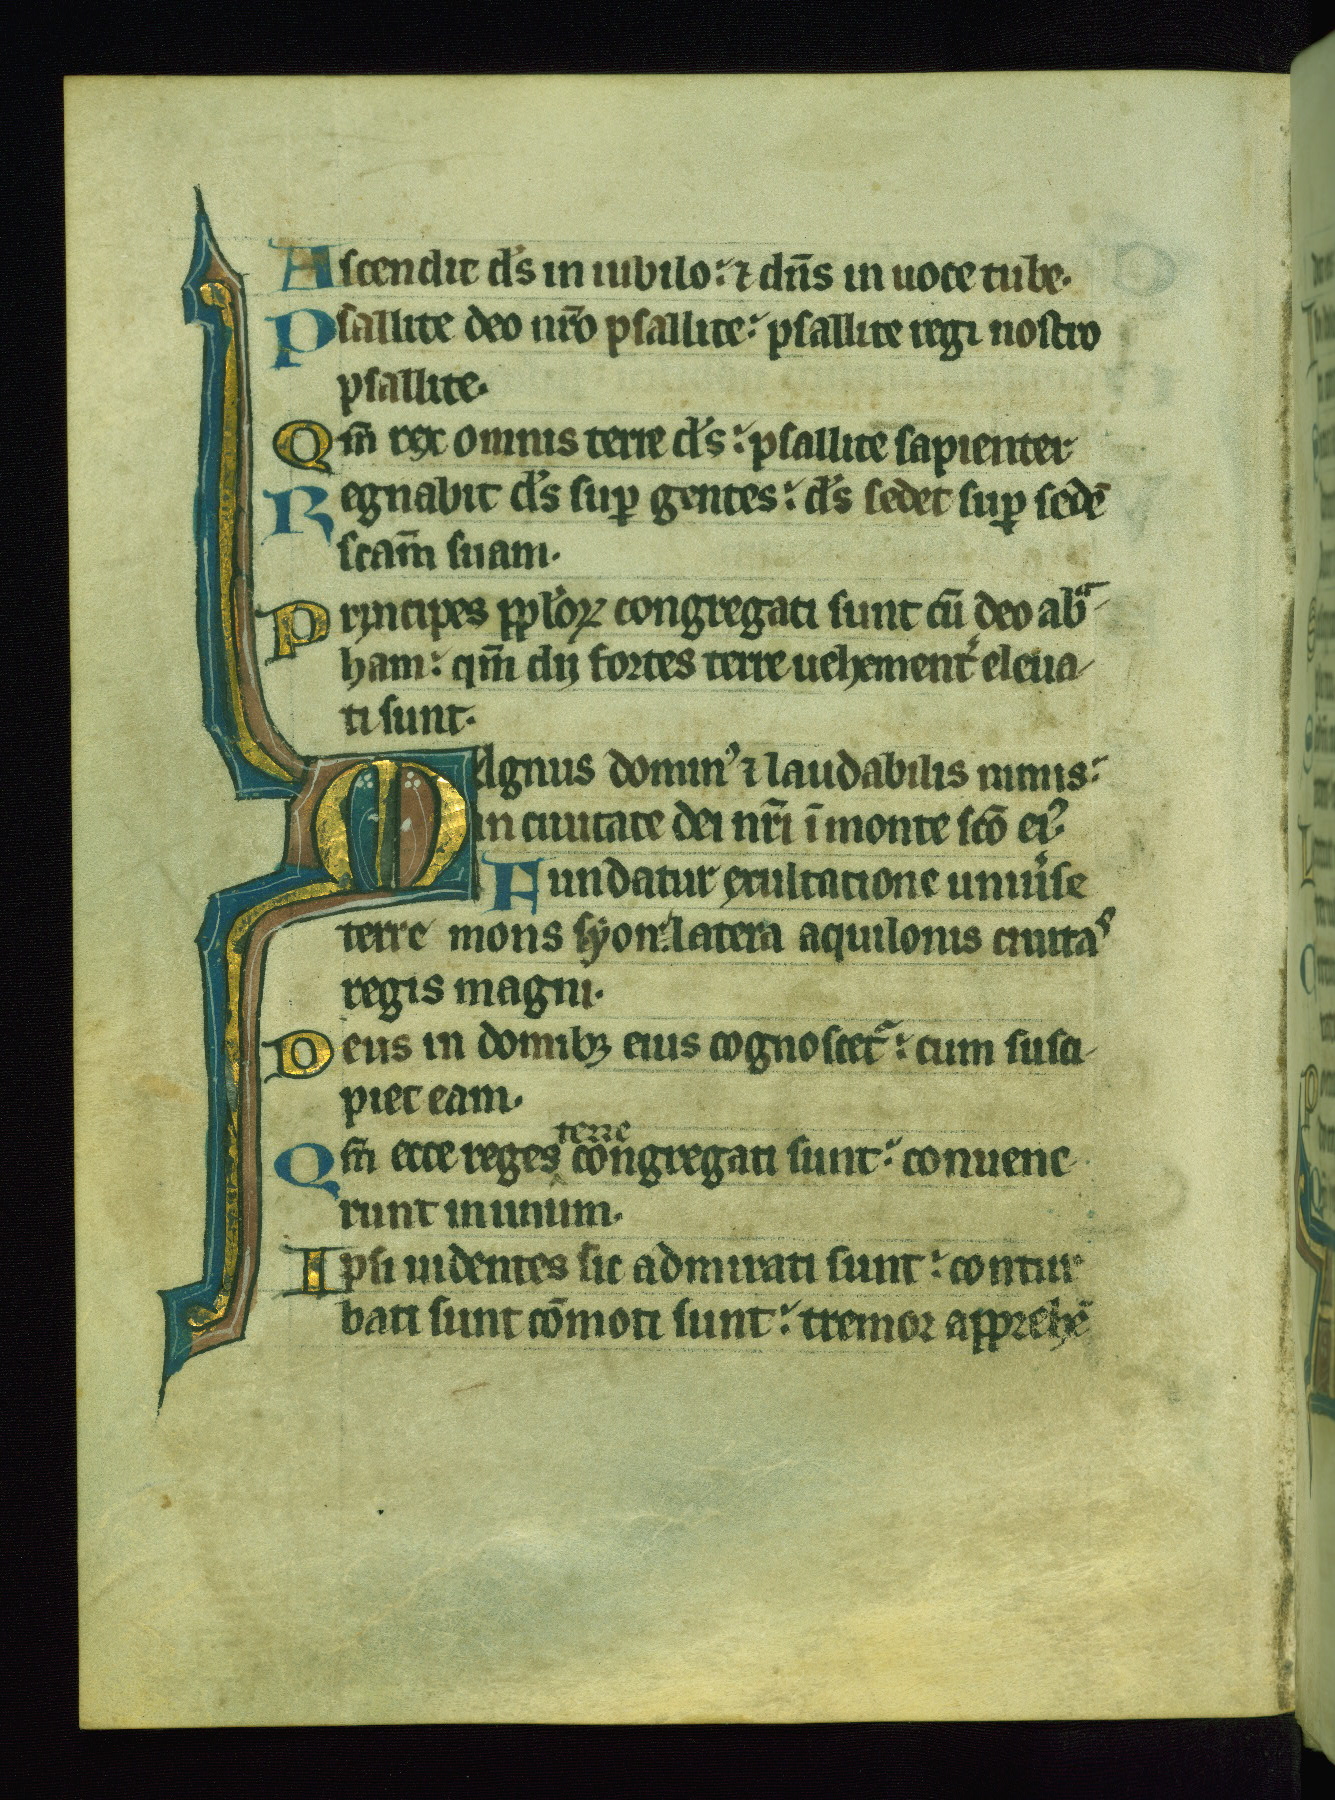 Ascendit d̄s in iubilo: ⁊ dn̄s in uoce tube.
Psallite deo nr̄o psallite: psallite regi nostro
psallite.
Qm̄ rex omnis terre d̄s: psallite sapienter
Regnabit d̄s suꝑ gentes: d̄s sedet suꝑ sedē
scam̄ suam.
Principes pp̄loꝝ congregati sunt cū deo abᵃ
ham: qm̄ dij fortes terre uehement̾ eleua
ti sunt.
MAgnus domin᾽ ⁊ laudabilis nimis:
in ciuitate dei nr̄i ī monte sc̄o ei᾽.
Fundatur exultatione uniu̾se
terre mons syon: latera aquilonis ciuitaˢ
regis magni.
Deus in domibꝫ eius cognoscet̾: cum susci
piet eam.
Qm̄ ecce reges terre cōngregati sunt: conuene
runt in unum.
Ipsi uidentes sic admirati sunt: contur
bati sunt cōmoti sunt: tremor apprehē